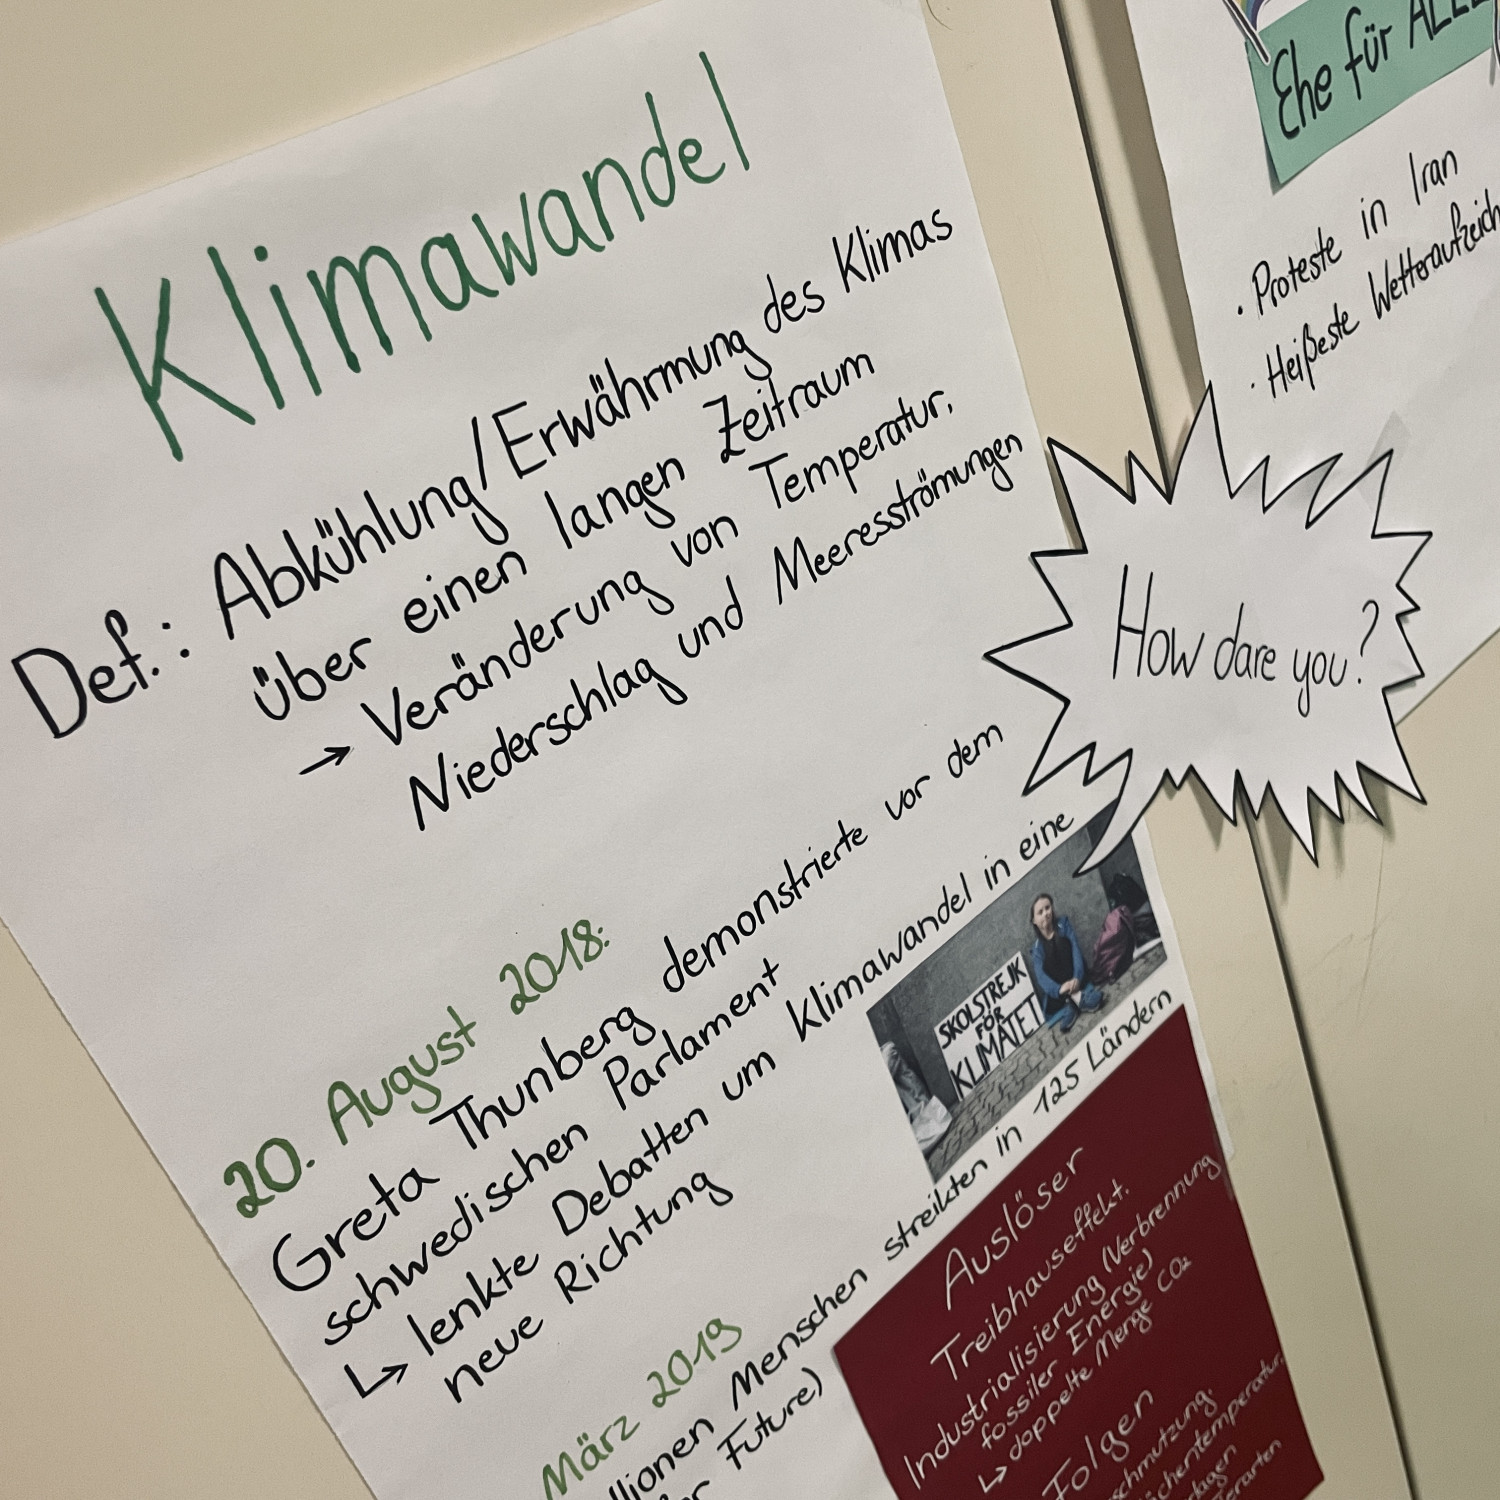 Klimawandel
Def.: Abkühlung/Erwährmung des Klimas
über einen langen Zeitraum
→ Veränderung von Temperatur,
Niederschlag und Meeresströmungen
20. August 2018:
Greta Thunberg demonstrierte vor dem
schwedischen Parlament
↳ lenkte Debatten um Klimawandel in eine
neue Richtung
SKOLSTREJK
FÖR
KLIMATET
März 2019
Menschen streikten in 125 Ländern
Future)
Auslöser
Treibhauseffekt.
Industrialisierung (Verbrennung
fossiler Energie)
↳ doppelte Menge CO₂
Folgen
How dare you?
Ehe für ALLE
• Proteste in Iran
• Heißeste